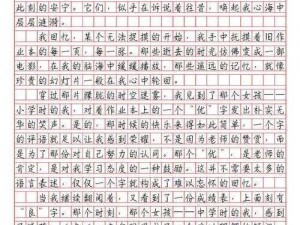 此刻的安宁。它们，似乎在诉说着往昔，唤起我心海中
层层涟漪。
我回忆，某个无法捉摸的开始，我手中抚摸着旧作
业本的每一页，每一张。那些逝去的时光仿佛变成一部
电影，在我的脑海中缓缓播放，那些遥远的记忆，就像
珍贵的幻灯片一般在我心中轮回。
穿过那片朦胧的时空迷雾，我见到了那个女孩——
小学时的我，对着作业本上的一个“优”字发出朴实无
华的笑声。是的，那时候的快乐来得如此简单，一个字
的评语就足以让我欢欣鼓舞，不是因为老师的赞赏，而
是为了那份对自己努力的认同。那个“优”，是老师的
肯定，是对我学习动力的燃烧。这并不需要太多的
语言表述，仅仅一个字就构成了难以忘怀的回忆。
当我继续翻阅着，又看到了一份成绩表，上面刻有
“良”字。那个时刻，那个我——中学时的我，感到